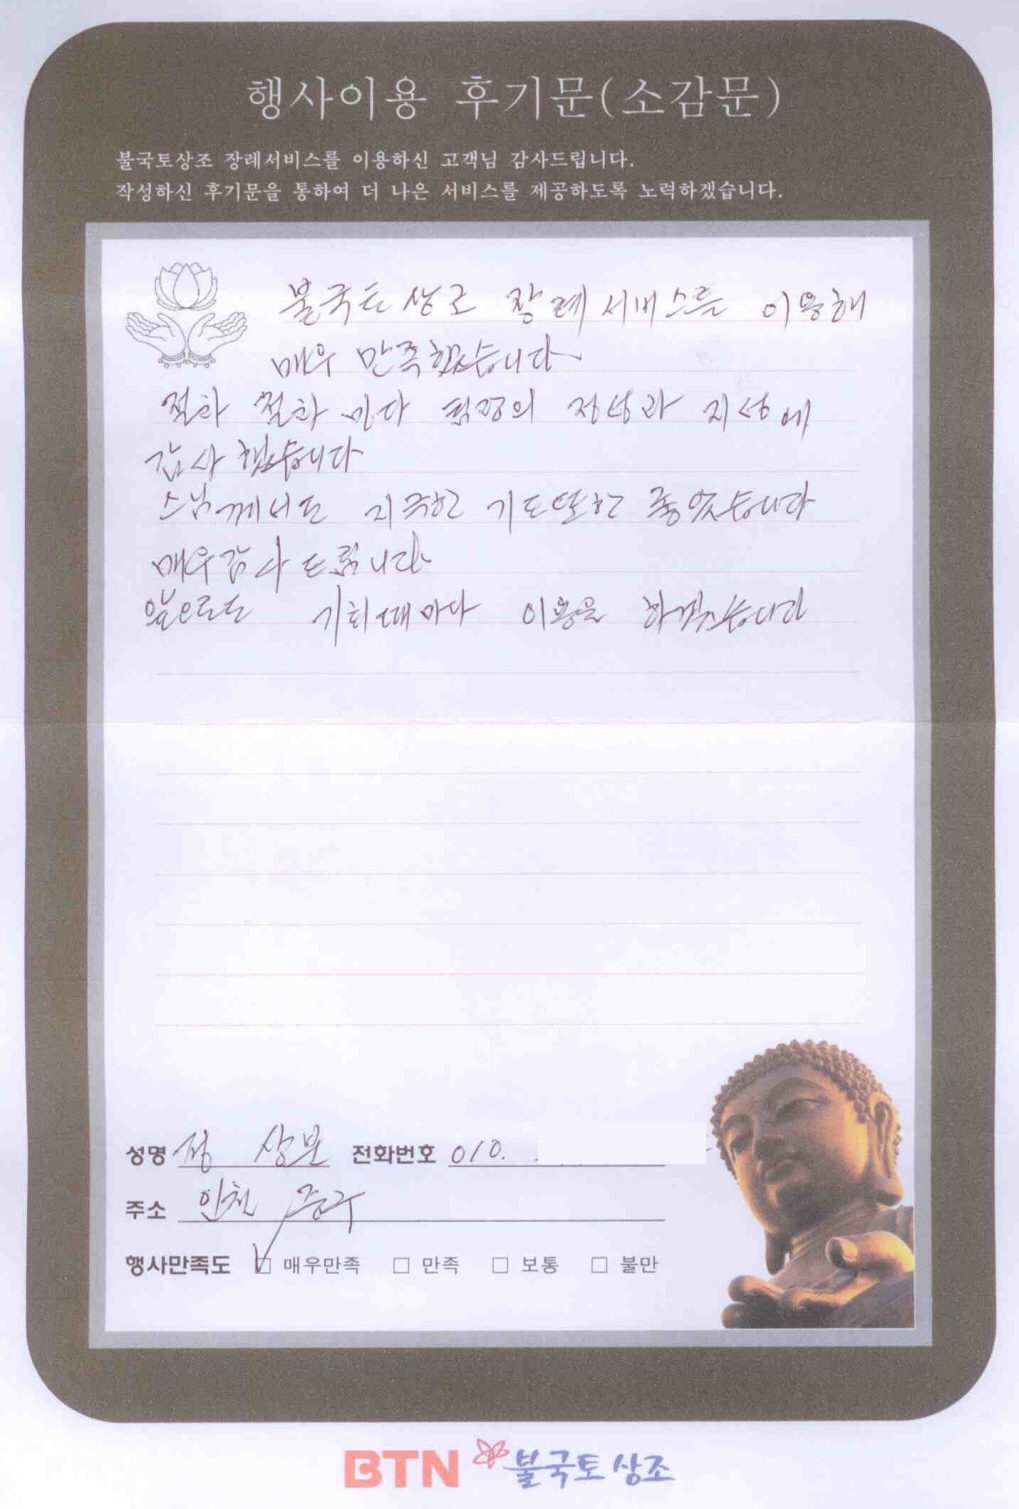 행사이용 후기문(소감문)
불국토상조 장례서비스를 이용하신 고객님 감사드립니다.
작성하신 후기문을 통하여 더 나은 서비스를 제공하도록 노력하겠습니다.
불국토 상조 장례 서비스를 이용해
매우 만족했습니다
절차 절차 마다 팀장의 정성과 지성에
감사 했습니다
스님께서도 지극한 기도또한 좋았습니다
매우감사 드립니다
앞으로도 기회때마다 이용을 하겠습니다
성명 상문 전화번호 010.
주소 인천 중구
행사만족도 매우만족 만족 보통 불만
BTN 불국토상조